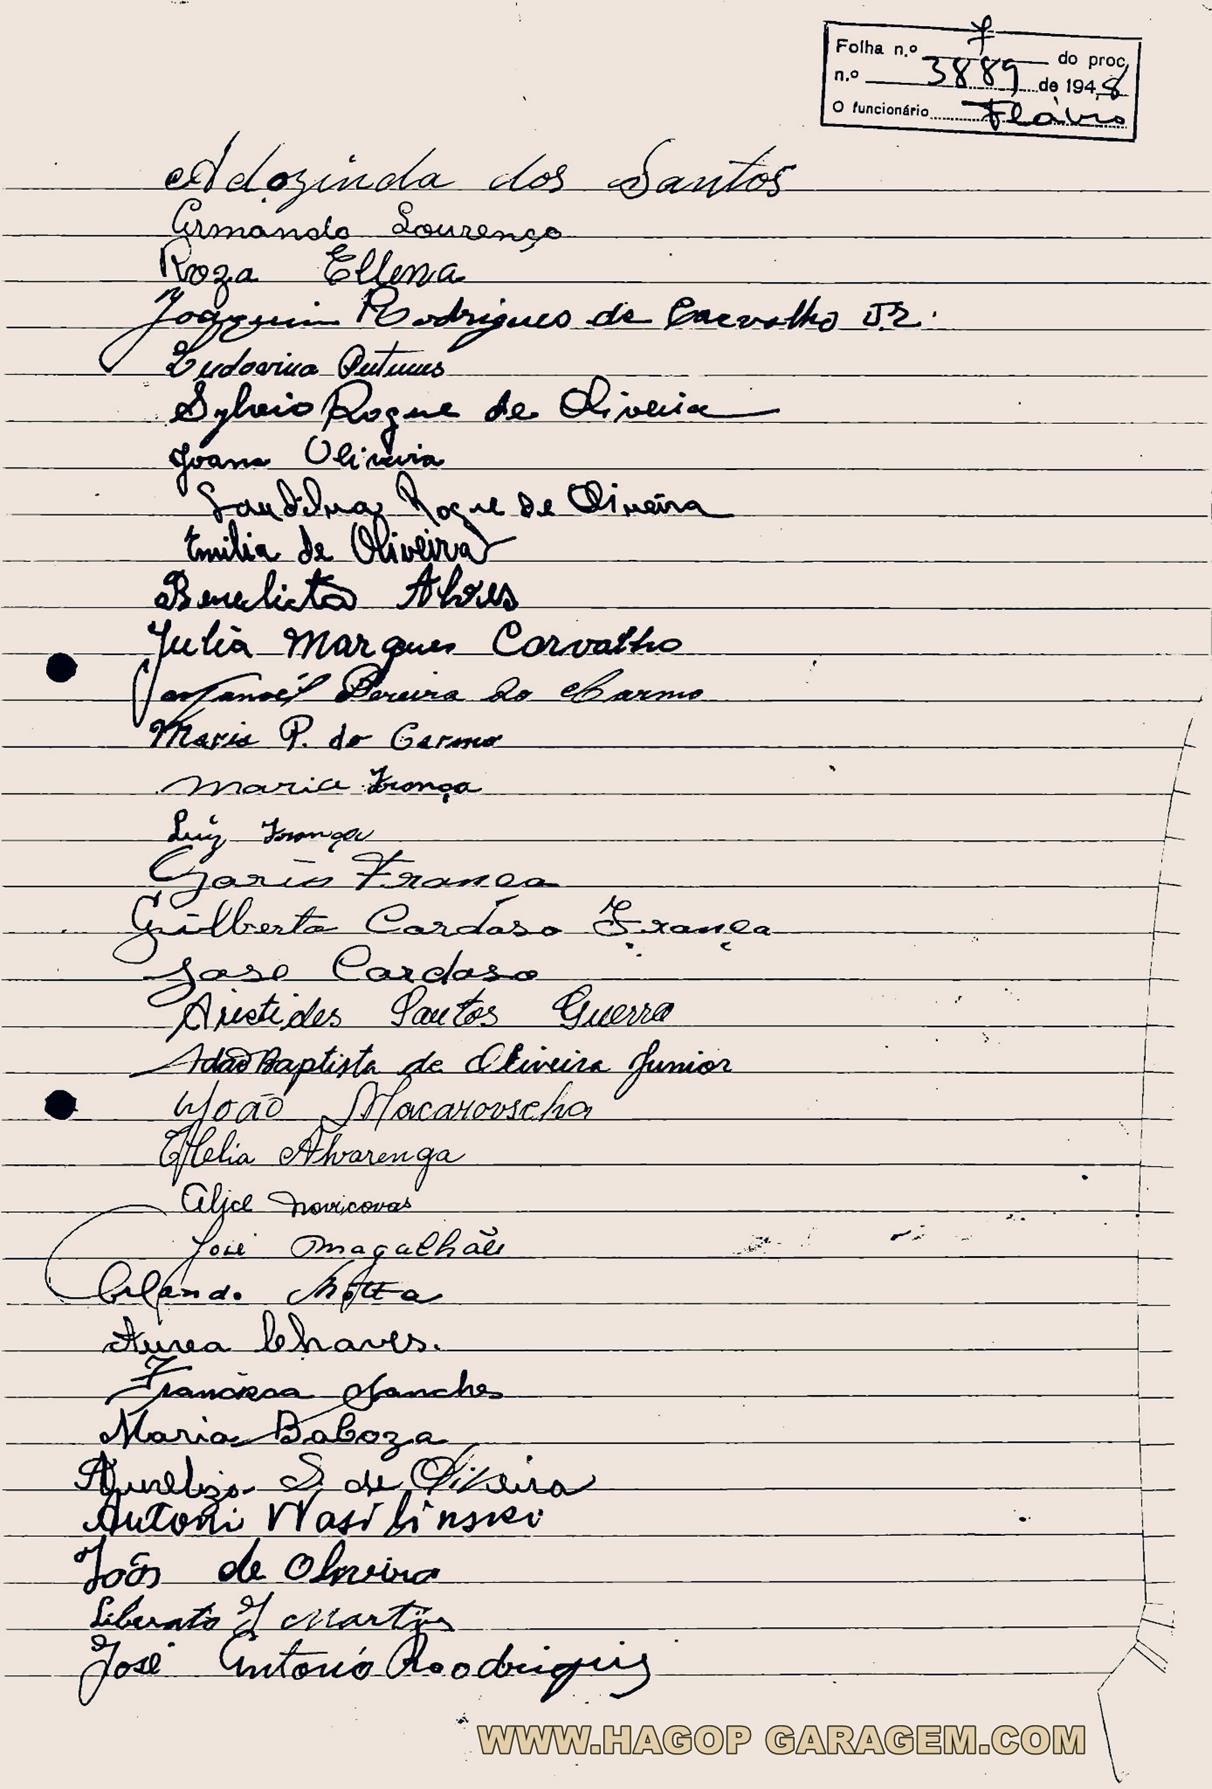 Folha n.º 7 do proc.
n.º 3889 de 1948
O funcionário Flávio
Adozinda dos Santos
Armando Lourenço
Roza Ellena
Joaquim Rodrigues de Carvalho Jr.
Ludovica
Sylvio Roque de Oliveira
Joana Oliveira
Roque de Oliveira
Emilia de Oliveira
Benedicto Alves
Julia Marques Carvalho
Pereira do Carmo
Maria P. do Carmo
Maria França
Luiz França
França
Guilberto Cardoso França
José Cardoso
Aristides Santos Guerra
Adão Baptista de Oliveira Junior
João Macarouscha
Ofelia Alvarenga
Alice Novicovas
José Magalhães
Orlando Motta
Aurea Chaves.
Francisca Sanches
Maria Baboza
S. de Oliveira
Antoni Wasilinski
João de Oliveira
Liberato J Martins
José Antonio Roodriguis
WWW.HAGOP GARAGEM.COM